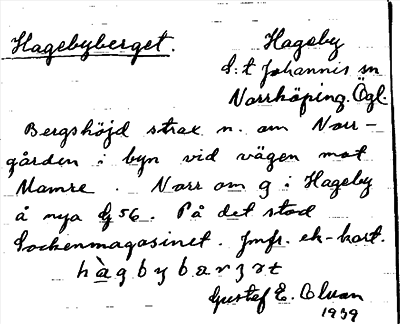 Hagebyberget.
Hageby
S:t Johannis sn
Norrköping. Ögl.
Bergshöjd strax n. om Norr-
gården i byn vid vägen mot
Mamre. Norr om g i Hageby
å nya G 56. På det stod
Sockenmagasinet. Jmfr. ek-kart.
hàgbybærjət
Gustaf E.
1939